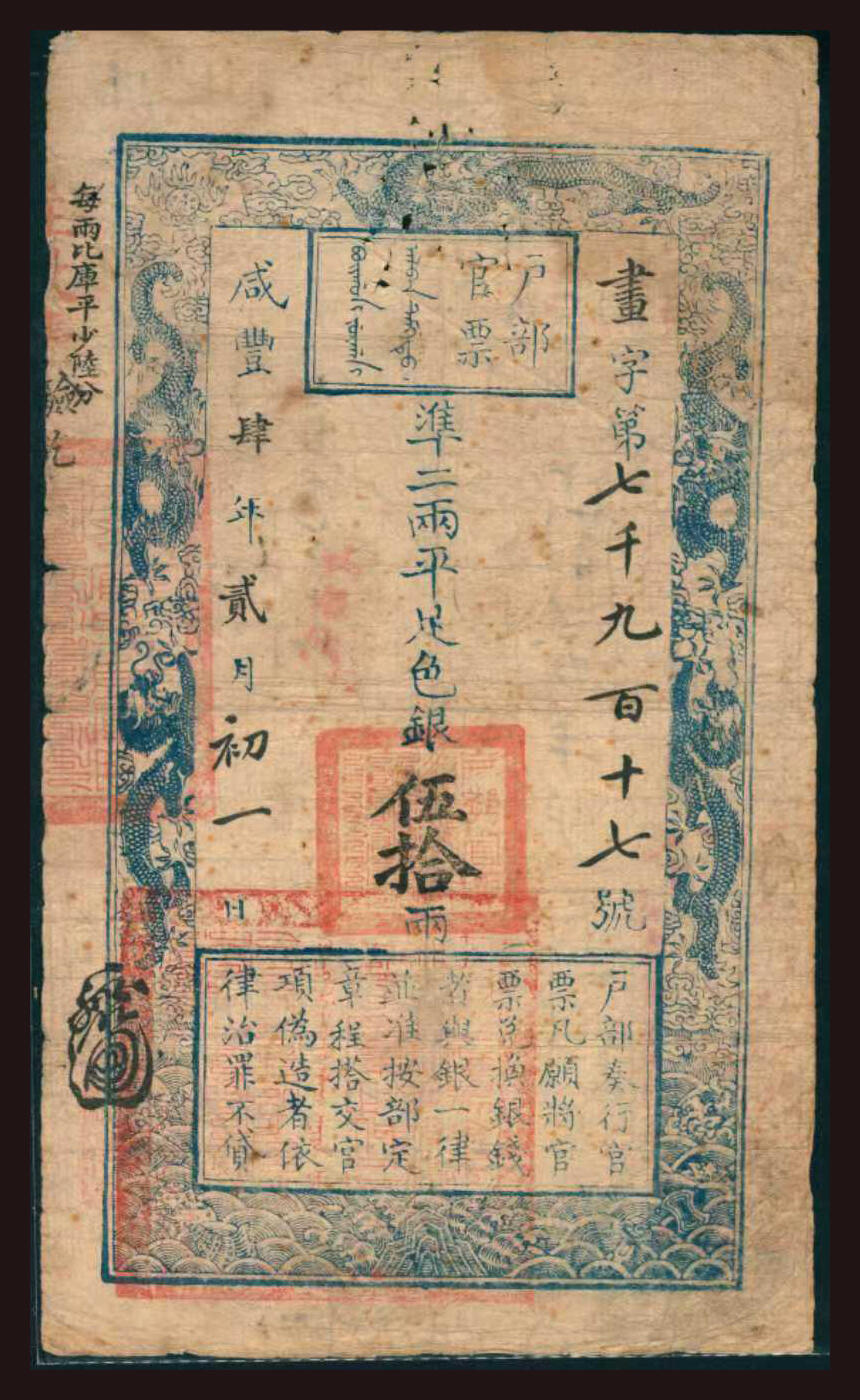 畫字第七千九百十七號
戶部
官票
準二兩平足色銀伍拾兩
咸豐肆年貳月初一日
戶部奏行官
票凡願將官
票兌換銀錢
者與銀一律
並准按部定
章程搭交官
項偽造者依
律治罪不貸
每兩比庫平少陸分